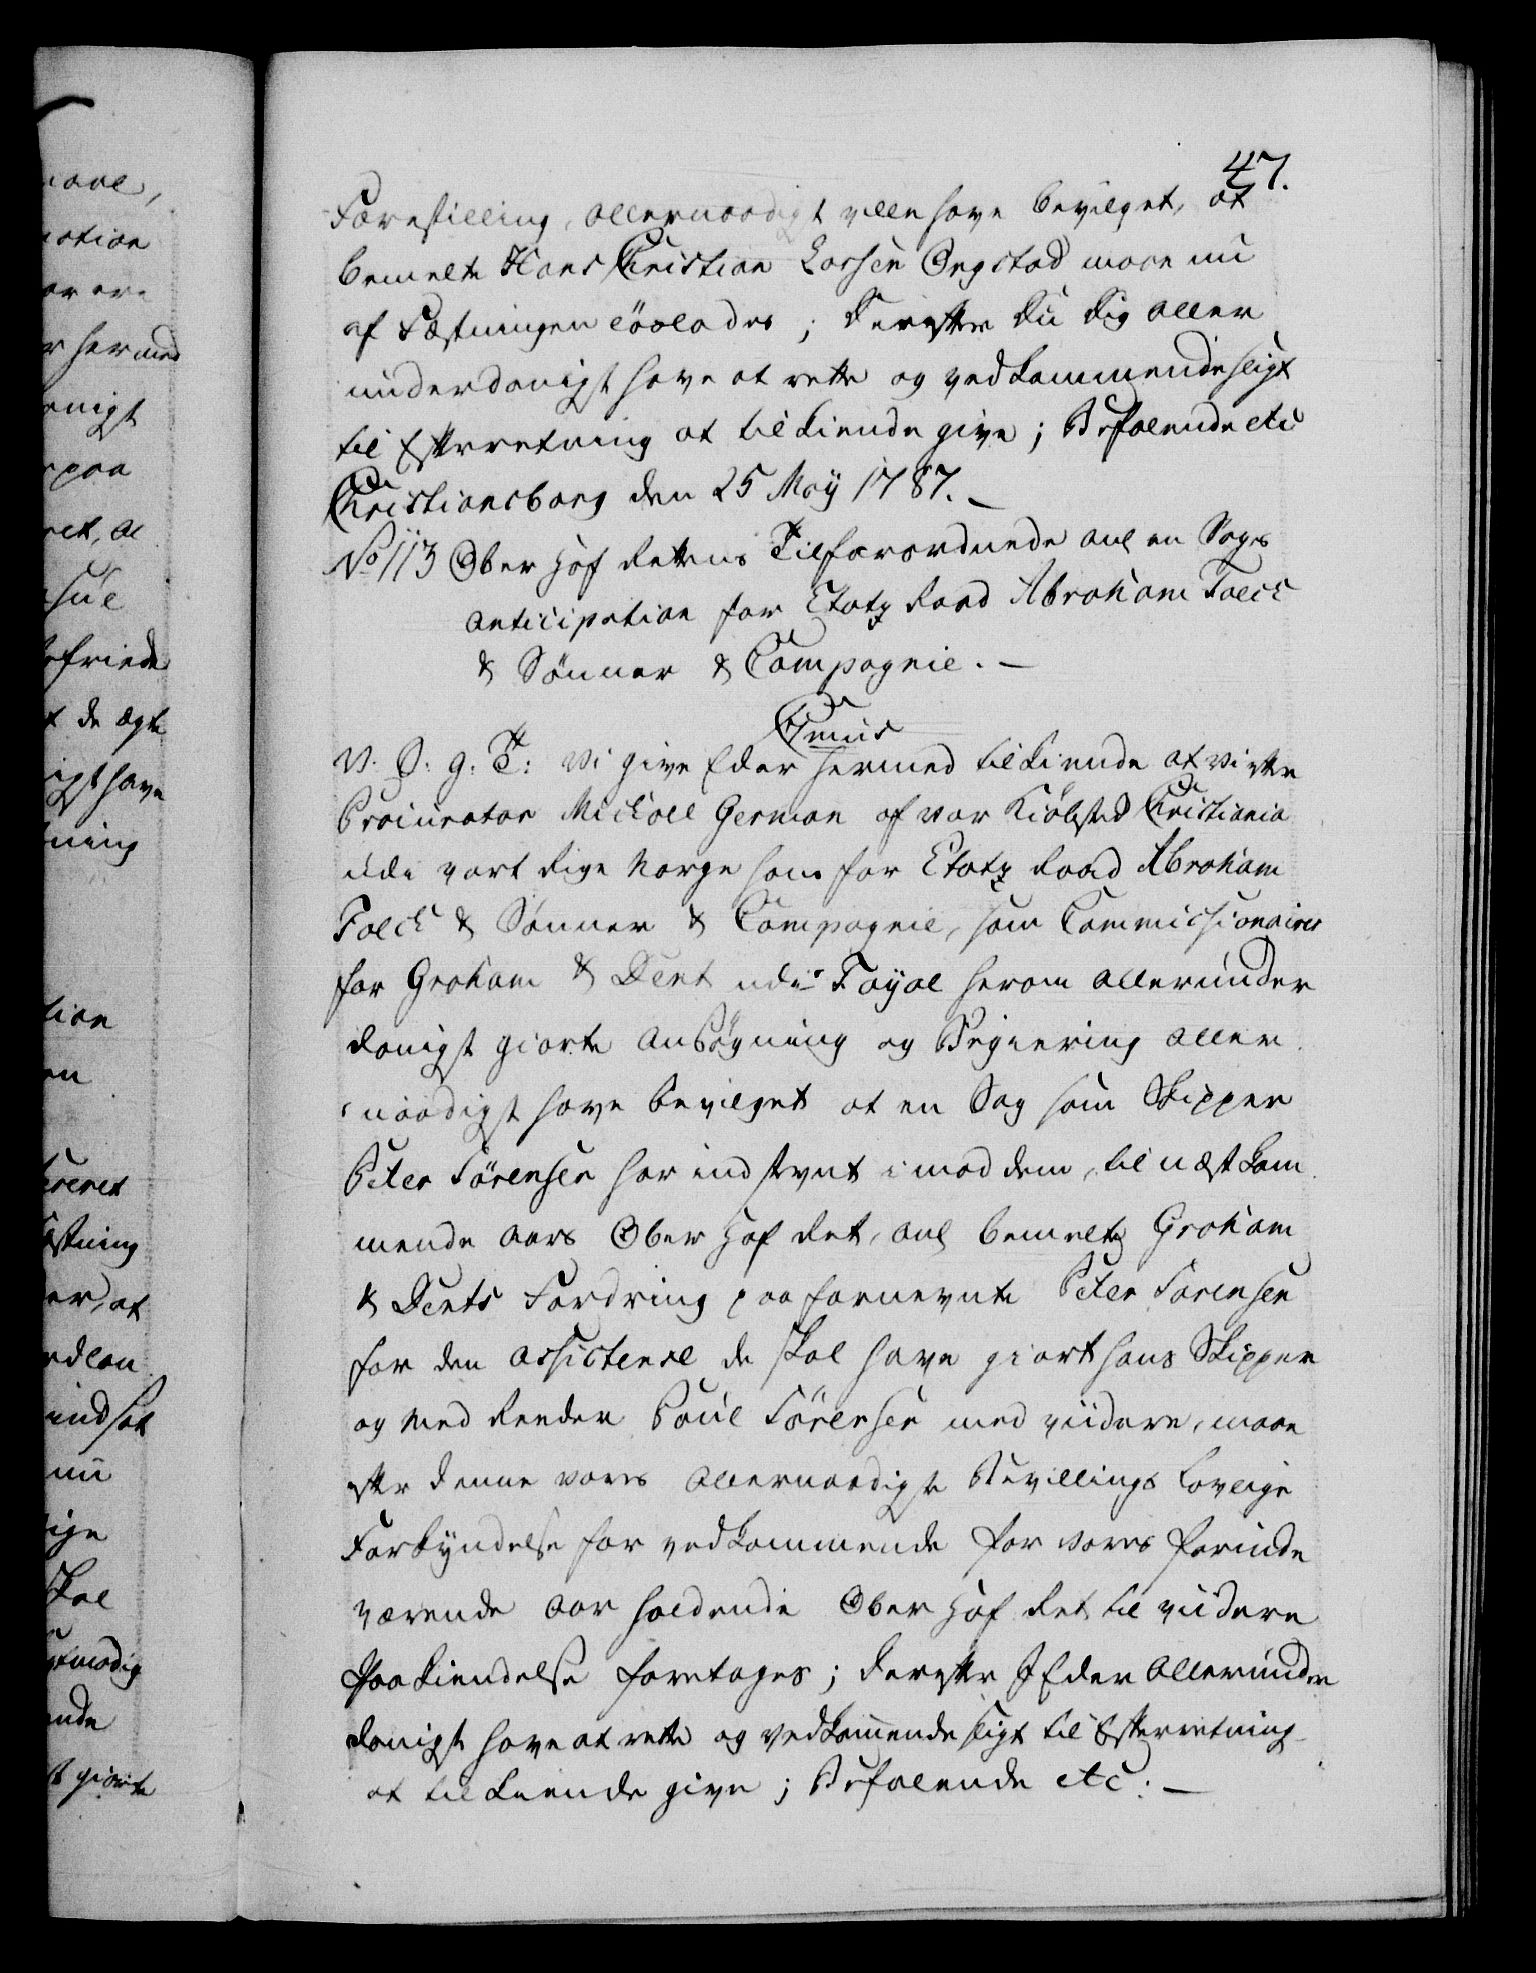 47.
Forestilling, allernaadigst ville have bevilget, at
bemelte Hans Christian Larsen Engstad maae nu
af Fæstningen löslades; derefter Du dig aller
underdanigst have at rette og vedkommende sligt
til Efterretning at tilkiende give; Befalende etc
Christiansborg den 25 May 1787.
No 113 Ober Hof Rettens Tilforordnede anl en Sags
anticipation for Etatz Raad Abraham Falck
& Sönner & Compagnie. —
Chmus
V. S. g. T: Vi give Eder hermed tilkiende at Vi efter
Procurator Michael German af vor Kiöbsted Christiania
udi vort Rige Norge hans for Etatz Raad Abraham
Falck & Sönner & Compagnie, som Commissionairer
for Graham & Dent udi Fayal herom allerunder
danigst giorte Ansögning og Begiering aller
naadigst have bevilget at en Sag som Skipper
Peter Sörensen har indstevnt imod dem, til næstkom
mende Aars Ober Hof Ret, anl bemelte Graham
& Dents Fordring paa fornevnte Peter Sörensen
for den assistense de skal have giort hans Skipper
og Med Reeder Poul Sörensen med viidere, maae
efter denne vores allernaadigste Bevillings lovlige
Forkyndelse for vedkommende for vores forinde
værende Aar holdende Ober Hof Ret til viidere
Paakiendelse foretages; derefter I Eder allerunder
danigst have at rette og vedkommende sligt til Efterretning
at tilkiende give; Befalende etc. —